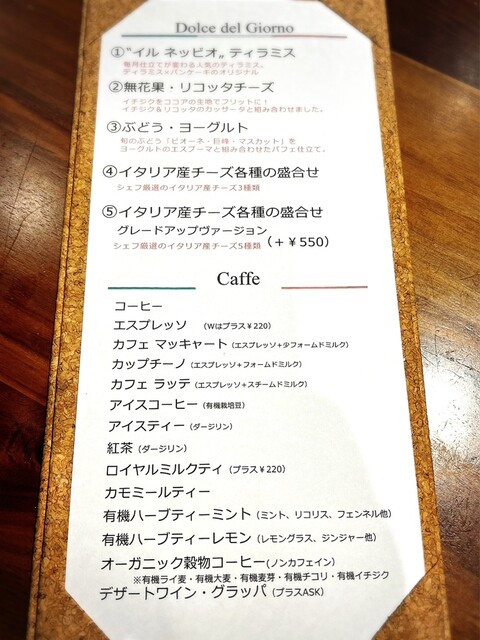 Dolce del Giorno
①“イル ネッビオ„ ティラミス
毎月仕立てが変わる人気のティラミス。
ティラミス×パンケーキのオリジナル
②無花果・リコッタチーズ
イチジクをココアの生地でフリットに!
イチジク&リコッタのカッサータと組み合わせました。
③ぶどう・ヨーグルト
旬のぶどう「ピオーネ・巨峰・マスカット」を
ヨーグルトのエスプーマと組み合わせたパフェ仕立て。
④イタリア産チーズ各種の盛合せ
シェフ厳選のイタリア産チーズ3種類
⑤イタリア産チーズ各種の盛合せ
グレードアップヴァージョン
シェフ厳選のイタリア産チーズ5種類 (+¥550)
Caffe
コーヒー
エスプレッソ (Wはプラス¥220)
カフェ マッキャート(エスプレッソ+少フォームドミルク)
カップチーノ(エスプレッソ+フォームドミルク)
カフェ ラッテ(エスプレッソ+スチームドミルク)
アイスコーヒー(有機栽培豆)
アイスティー(ダージリン)
紅茶(ダージリン)
ロイヤルミルクティ(プラス¥220)
カモミールティー
有機ハーブティーミント(ミント、リコリス、フェンネル他)
有機ハーブティーレモン(レモングラス、ジンジャー他)
オーガニック穀物コーヒー(ノンカフェイン)
※有機ライ麦・有機大麦・有機麦芽・有機チコリ・有機イチジク
デザートワイン・グラッパ(プラスASK)